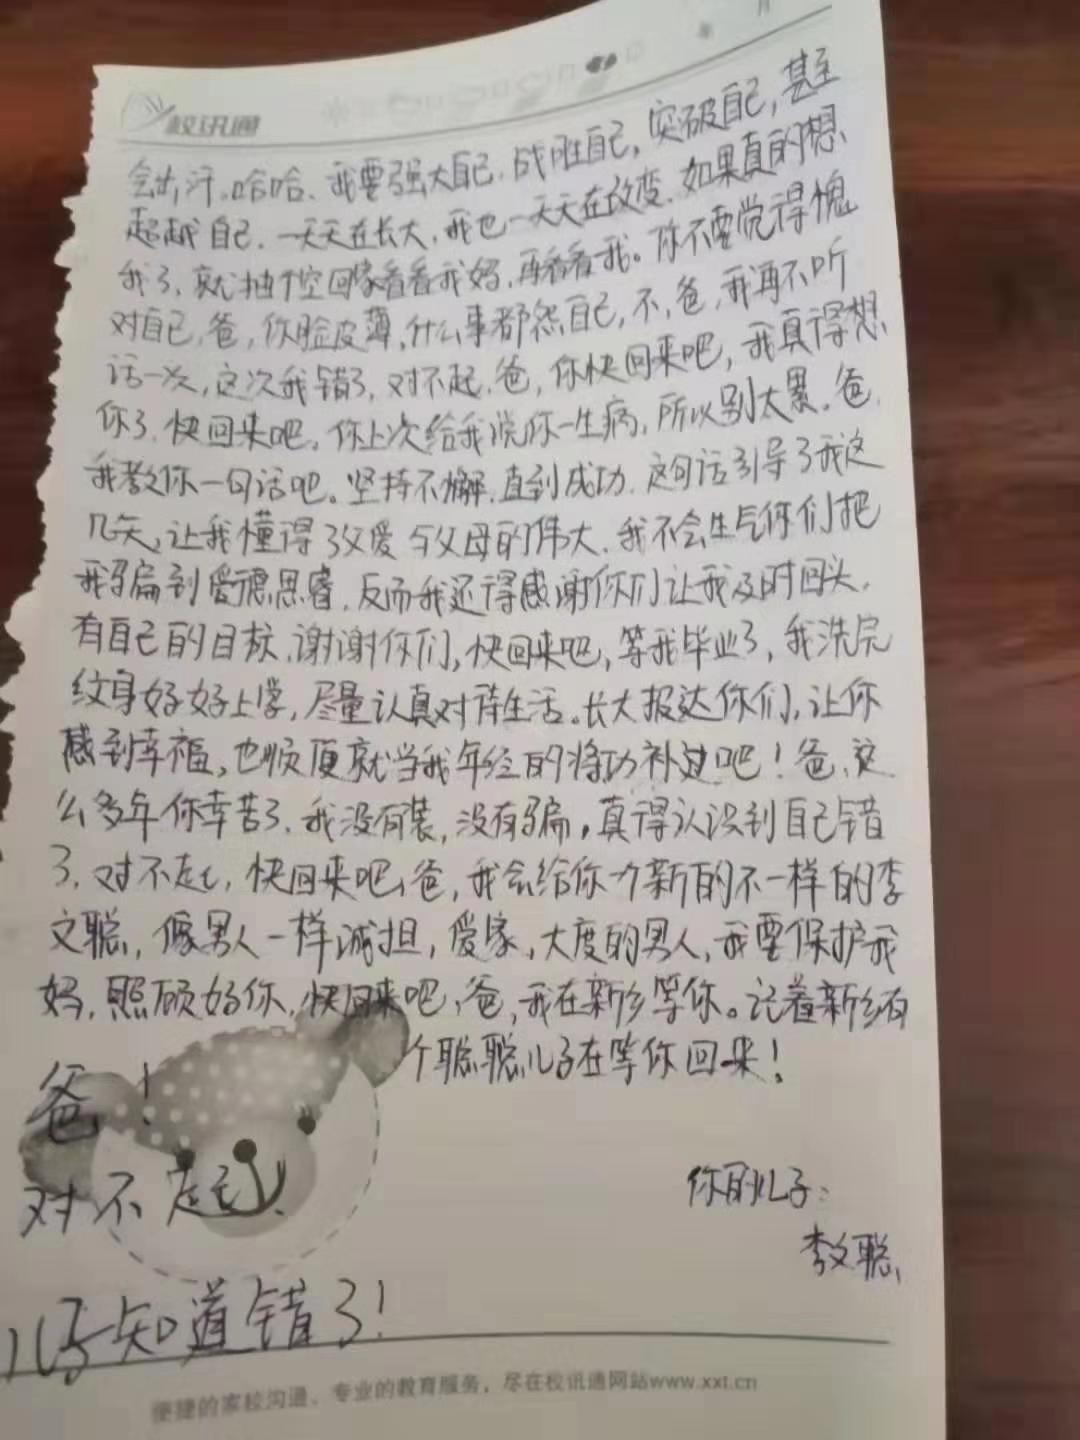 月
校讯通
会出汗。哈哈、我要强大自己、战胜自己,突破自己,甚至
超越自己、一天天在长大,我也一天天在改变、如果真的想
我了、就抽个空回家看看我妈,再看看我。你不要觉得愧
对自己,爸,你脸皮薄,什么事都怨自己,不,爸,我再不听
话一次,这次我错了,对不起,爸,你快回来吧,我真得想
你了,快回来吧,你上次给我说你一生病,所以别太累。爸、
我教你一句话吧。坚持不懈、直到成功、这句话引导了我这
几天,让我懂得了父爱与父母的伟大、我不会生气你们把
我骗到爱德思睿、反而我还得感谢你们让我及时回头、
有自己的目标、谢谢你们,快回来吧,等我毕业了,我洗完
纹身好好上学,尽量认真对待生活。长大报达你们,让你
感到幸福,也顺便就当我年经的将功补过吧!爸、这
么多年你幸苦了、我没有装,没有骗,真得认识到自己错
了、对不起,快回来吧,爸,我会给你个新的不一样的李
文聪,像男人一样诚担,爱家,大度的男人,我要保护我
妈,照顾好你,快回来吧,爸,我在新乡等你。记着新乡有
个聪聪儿子在等你回来!
爸!
对不起、
你的儿子:
李文聪
儿子知道错了!
便捷的家校沟通、专业的教育服务,尽在校讯通网站www.xxt.cn